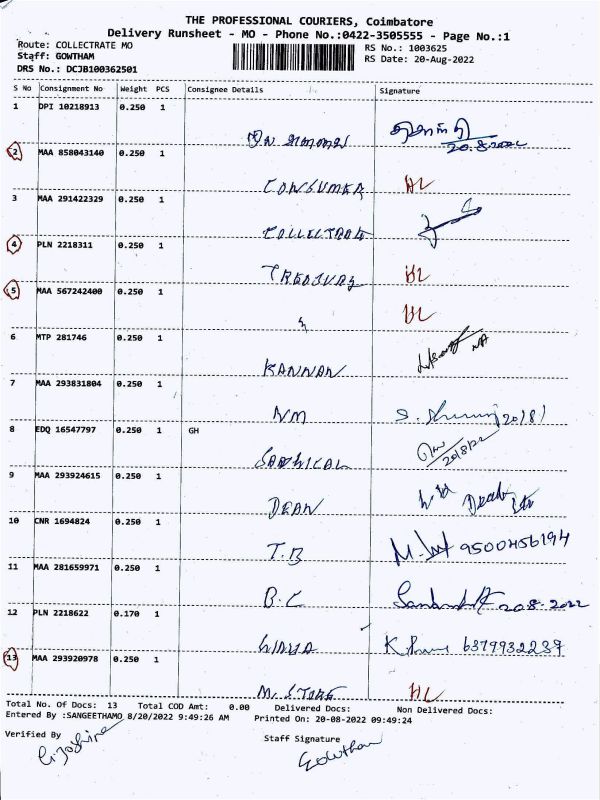 THE PROFESSIONAL COURIERS, Coimbatore
Delivery Runsheet - MO - Phone No.:0422-3505555 - Page No.:1
Route: COLLECTRATE MO RS No.: 1003625
Staff: GOWTHAM RS Date: 20-Aug-2022
DRS No.: DCJB100362501
S No Consignment No Weight PCS Consignee Details Signature
1 DPI 10218913 0.250 1
20.8.2022
2 MAA 858043140 0.250 1
CONSUMER HL
3 MAA 291422329 0.250 1
COLLECTRATE
4 PLN 2218311 0.250 1
TREASURY HL
5 MAA 567242400 0.250 1
HL
6 MTP 281746 0.250 1
KANNAN
7 MAA 293831804 0.250 1
NM
8 EDQ 16547797 0.250 1 GH
20/8/22
9 MAA 293924615 0.250 1
DEAN
10 CNR 1694824 0.250 1
T.B 9500456194
11 MAA 281659971 0.250 1
B.C 20.8.2022
12 PLN 2218622 0.170 1
6379932237
13 MAA 293920978 0.250 1
M. STORE HL
Total No. Of Docs: 13 Total COD Amt: 0.00 Delivered Docs: Non Delivered Docs:
Entered By :SANGEETHAMO 8/20/2022 9:49:26 AM Printed On: 20-08-2022 09:49:24
Verified By Staff Signature
Gowtham